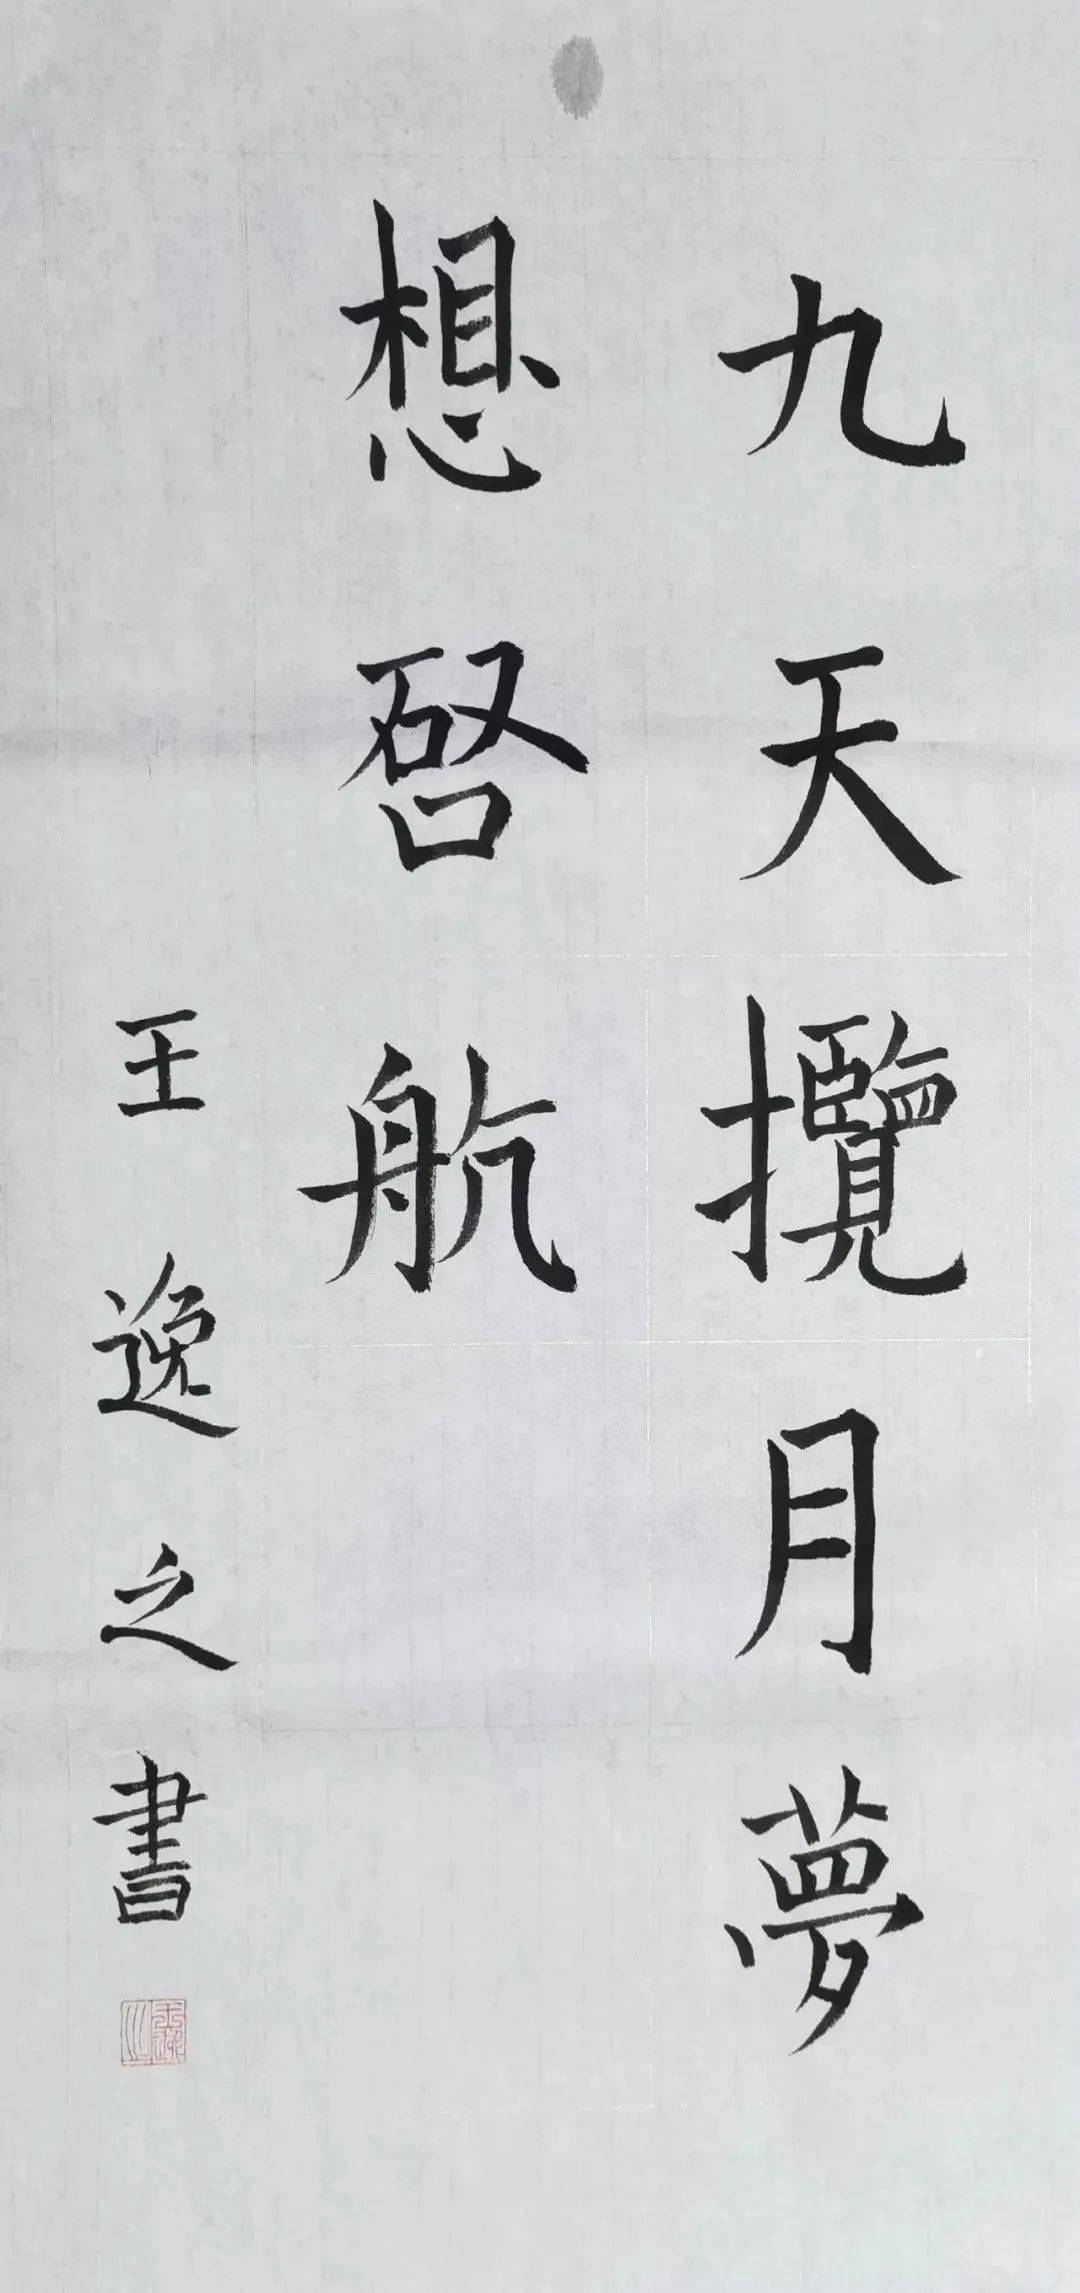 九天攬月夢
想啓航
王逸之書